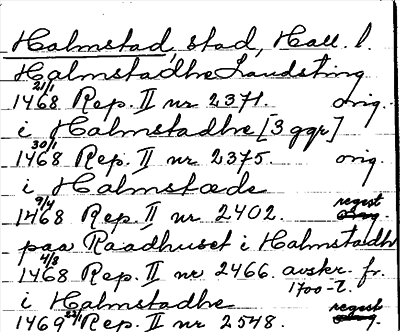 Halmstad, stad, Hall. l.
Halmstadhe Landsting
21/1
1468 Rep. II nr 2371. orig.
i Halmstadhe [3 ggr]
30/1
1468 Rep. II nr 2375. orig.
i Halmstæde
9/4 regest
1468 Rep. II nr 2402.
paa Raadhuset i Halmstadh
4/8
1468 Rep. II nr 2466. avskr. fr.
1700-t.
i Halmstadhe
regest
1469 Rep. II nr 2548.